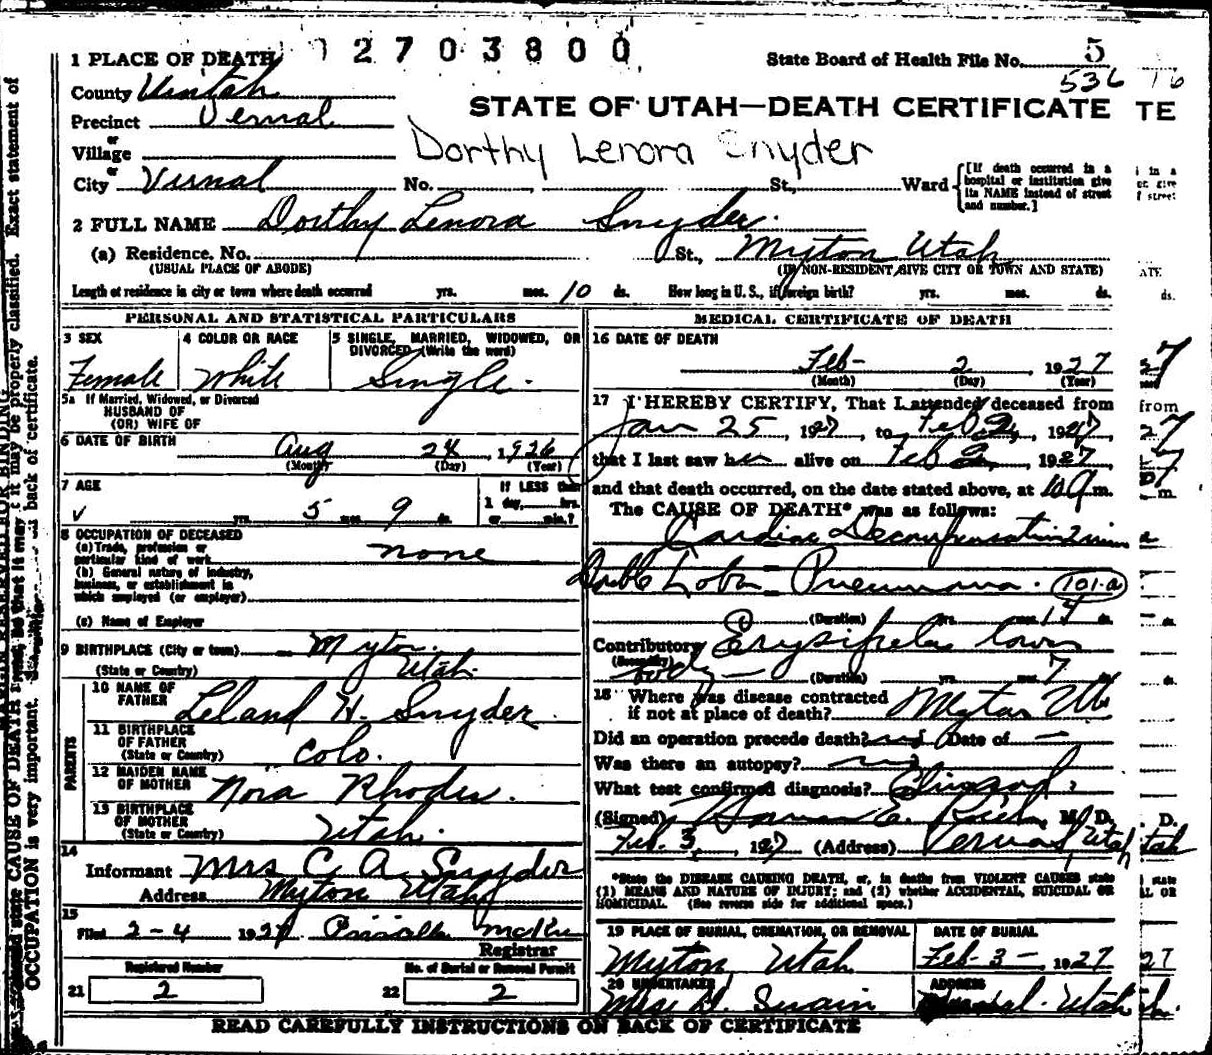 1 PLACE OF DEATH 2703800 State Board of Health File No. 5
536
County Uintah STATE OF UTAH—DEATH CERTIFICATE TE
Precinct Vernal
or
Village Dorthy Lenora Snyder
or
City Vernal No. , St., Ward [If death occurred in a hospital or institution give its NAME instead of street and number.]
2 FULL NAME Dorthy Lenora Snyder.
(a) Residence, No. St., Myton Utah
(USUAL PLACE OF ABODE) (IF NON-RESIDENT GIVE CITY OR TOWN AND STATE)
Length of residence in city or town where death occurred yrs. mos. 10 ds. How long in U. S., if foreign birth? yrs. mos. ds.
PERSONAL AND STATISTICAL PARTICULARS
3 SEX 4 COLOR OR RACE 5 SINGLE, MARRIED, WIDOWED, OR DIVORCED (Write the word)
Female White Single.
5a If Married, Widowed, or Divorced
HUSBAND OF
(OR) WIFE OF
6 DATE OF BIRTH Aug 24, 1926
(Month) (Day) (Year)
7 AGE If LESS than
1 day, hrs.
yrs. 5 mos. 9 ds. or min.?
8 OCCUPATION OF DECEASED
(a) Trade, profession or
particular kind of work none
(b) General nature of industry,
business, or establishment in
which employed (or employer)
(c) Name of Employer
9 BIRTHPLACE (City or town) Myton.
(State or Country) Utah.
PARENTS
10 NAME OF
FATHER Leland H. Snyder.
11 BIRTHPLACE
OF FATHER
(State or Country) Colo.
12 MAIDEN NAME
OF MOTHER Nora Rhodes.
13 BIRTHPLACE
OF MOTHER
(State or Country) Utah.
14
Informant Mrs C. A. Snyder
Address Myton Utah
15
Filed 2-4 1927
Registrar
Registered Number No. of Burial or Removal Permit
21 2 22 2
MEDICAL CERTIFICATE OF DEATH
16 DATE OF DEATH
Feb- 2, 1927
(Month) (Day) (Year)
17 I HEREBY CERTIFY, That I attended deceased from
Jan 25, 1927, to Feb 2, 1927,
that I last saw her alive on Feb 2, 1927,
and that death occurred, on the date stated above, at 10 m.
The CAUSE OF DEATH* was as follows:
Cardiac Decompensation
Double Lobar Pneumonia. 101-a
(Duration) yrs. mos. 14 ds.
Contributory Erysipelas lower
(Secondary) body
(Duration) yrs. mos. 7 ds.
18 Where was disease contracted
if not at place of death? Myton Ut
Did an operation precede death? no Date of —
Was there an autopsy? no
What test confirmed diagnosis? Clinical
(Signed) M. D.
Feb. 3, 1927 (Address) Vernal, Utah
*State the DISEASE CAUSING DEATH, or, in deaths from VIOLENT CAUSES state
(1) MEANS AND NATURE OF INJURY; and (2) whether ACCIDENTAL, SUICIDAL OR
HOMICIDAL. (See reverse side for additional space.)
19 PLACE OF BURIAL, CREMATION, OR REMOVAL DATE OF BURIAL
Myton, Utah Feb-3-, 1927
20 UNDERTAKER ADDRESS
Swain Vernal Utah
READ CAREFULLY INSTRUCTIONS ON BACK OF CERTIFICATE